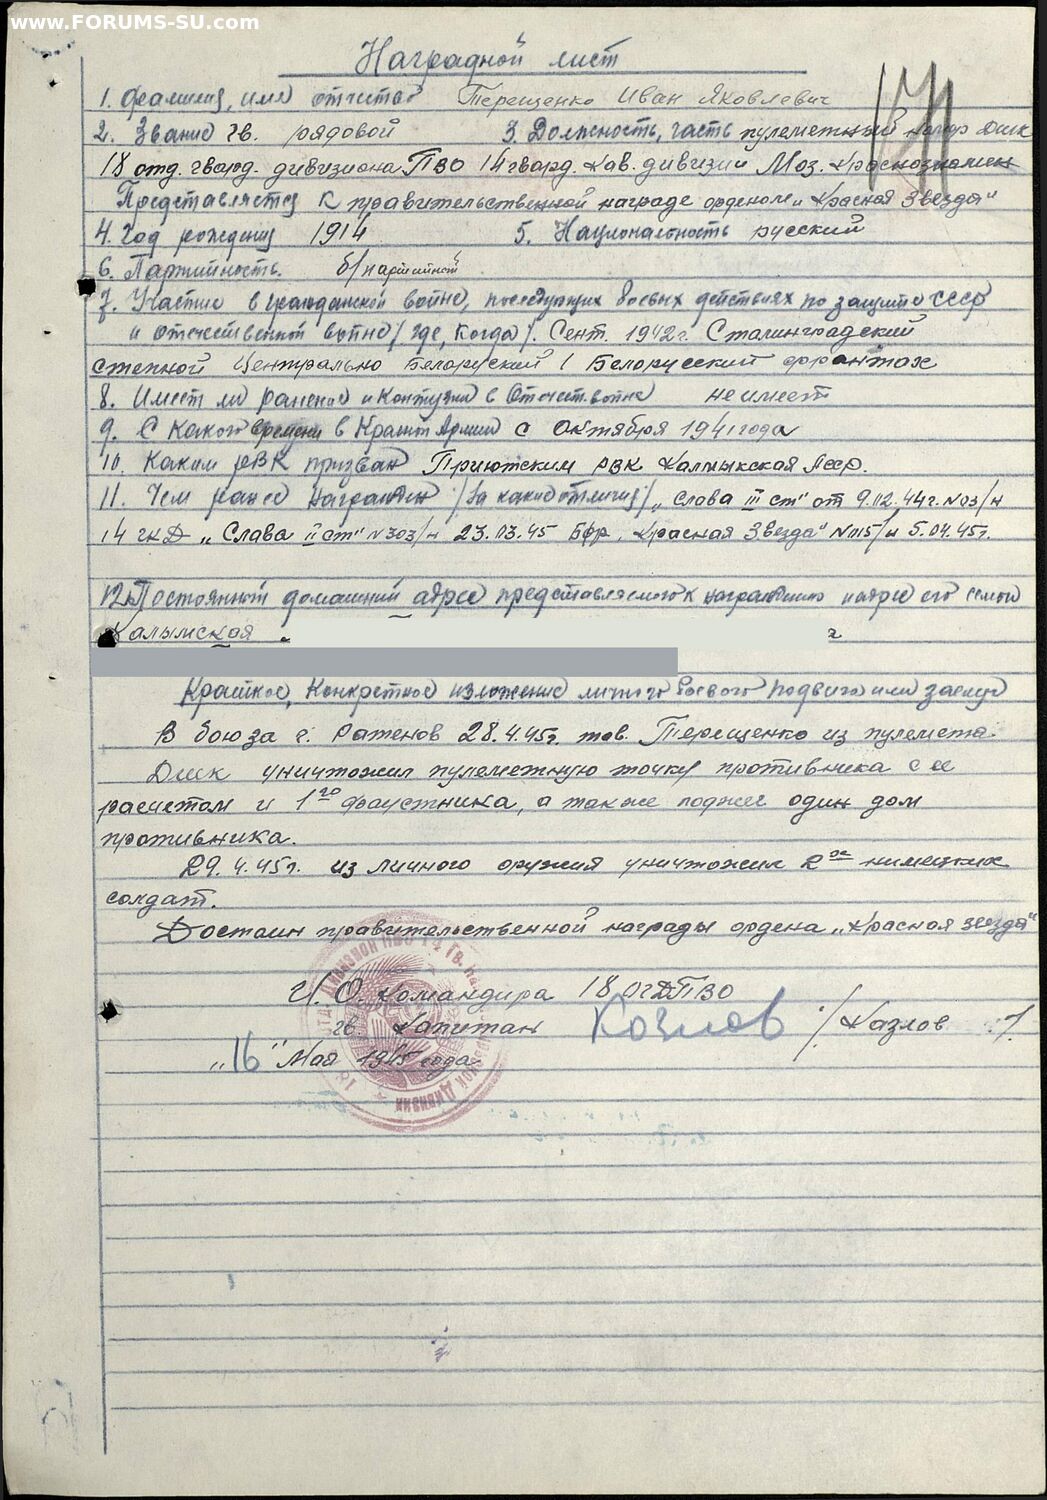 www.FORUMS-SU.com
Наградной лист
1. Фамилия, имя отчество Терещенко Иван Яковлевич
2. Звание гв. рядовой 3. Должность, часть пулеметный номер Дшк
18 отд. гвард. дивизиона ПВО 14 гвард. Кав. дивизии Моз. Краснознамен
Представляется к правительственной награде орденом „Красная Звезда"
4. Год рождения 1914 5. Национальность русский
6. Партийность. б/партийный
7. Участие в гражданской войне, последующих боевых действиях по защите СССР
и отечественной войне /где, когда/. Сент. 1942г. Сталинградский
степной Центрально Белоруский 1 Белорусский фронтах
8. Имеет ли ранения и контузии в Отечест. войне не имеет
9. С какого времени в Красной Армии с октября 1941 года
10. Каким РВК призван Приютским РВК Калмыкская Асср.
11. Чем ранее награжден /за какие отличия/ „Слова III ст" от 9.02.44г. №03/н
14 гкд „Слава II ст" №303/н 23.03.45 Бфр. „Красная Звезда" №015/н 5.04.45г.
12. Постоянный домашний адрес представляемого к награждению и адрес его семьи
Калымская
Краткое, конкретное изложение личного боевого подвига или заслуг
В бою за г. Ратенов 28.4.45г. тов. Терещенко из пулемета
Дшк уничтожил пулеметную точку противника с ее
расчетом и 1го фаустника, а также поджег один дом
противника.
29.4.45г. из личного оружия уничтожил 2ох нимецких
солдат.
Достоин правительственной награды ордена „Красная звезда"
И.О. Командира 18 ОГДПВО
гв. Капитан Козлов /Казлов /
„16" Мая 1945 года